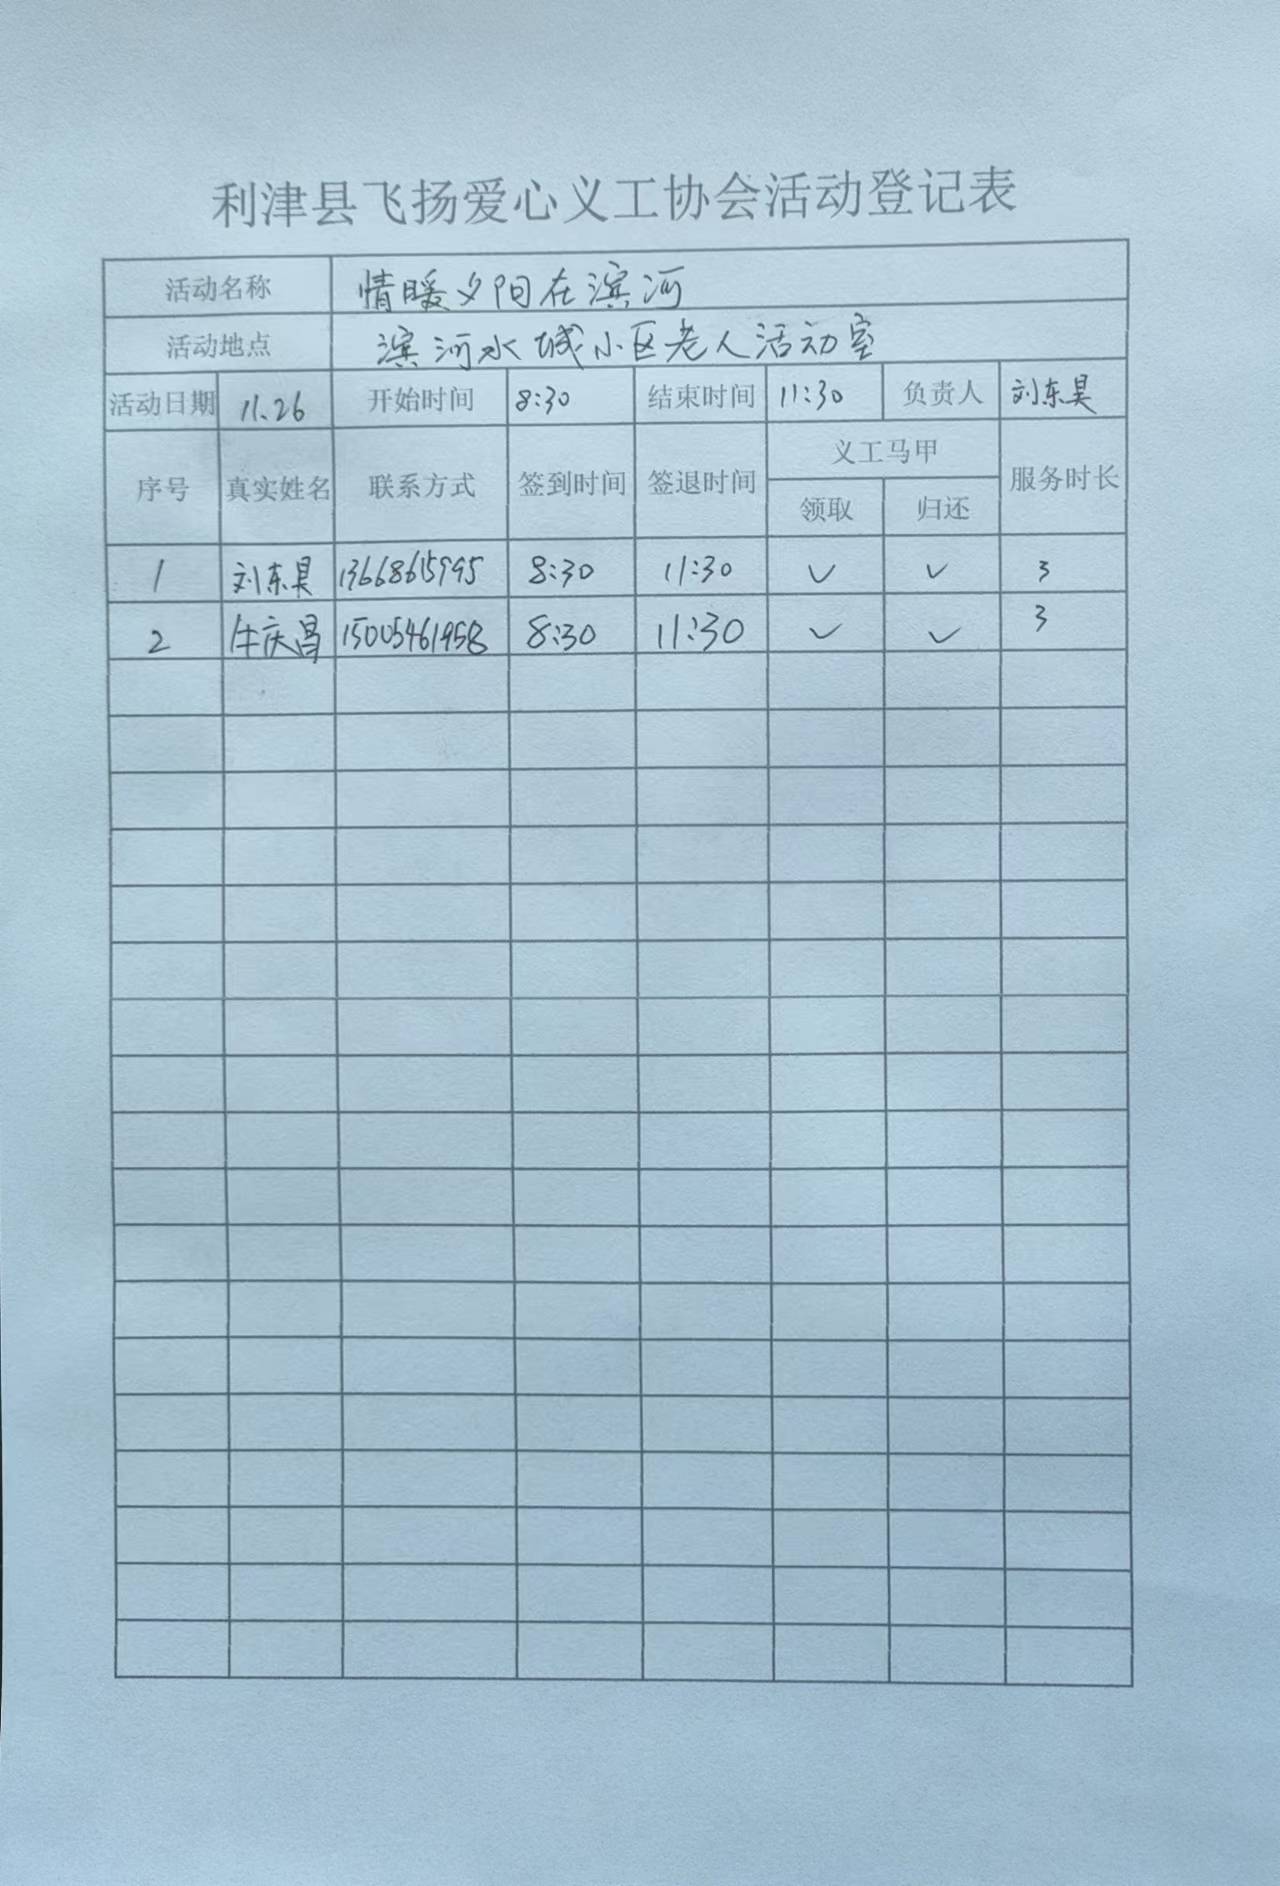 利津县飞扬爱心义工协会活动登记表
活动名称 情暖夕阳在滨河
活动地点 滨河水城小区老人活动室
活动日期 11.26 开始时间 8:30 结束时间 11:30 负责人 刘东昊
序号 真实姓名 联系方式 签到时间 签退时间 义工马甲 服务时长
领取 归还
1 刘东昊 13668615995 8:30 11:30 ✓ ✓ 3
2 牛庆昌 15005461958 8:30 11:30 ✓ ✓ 3